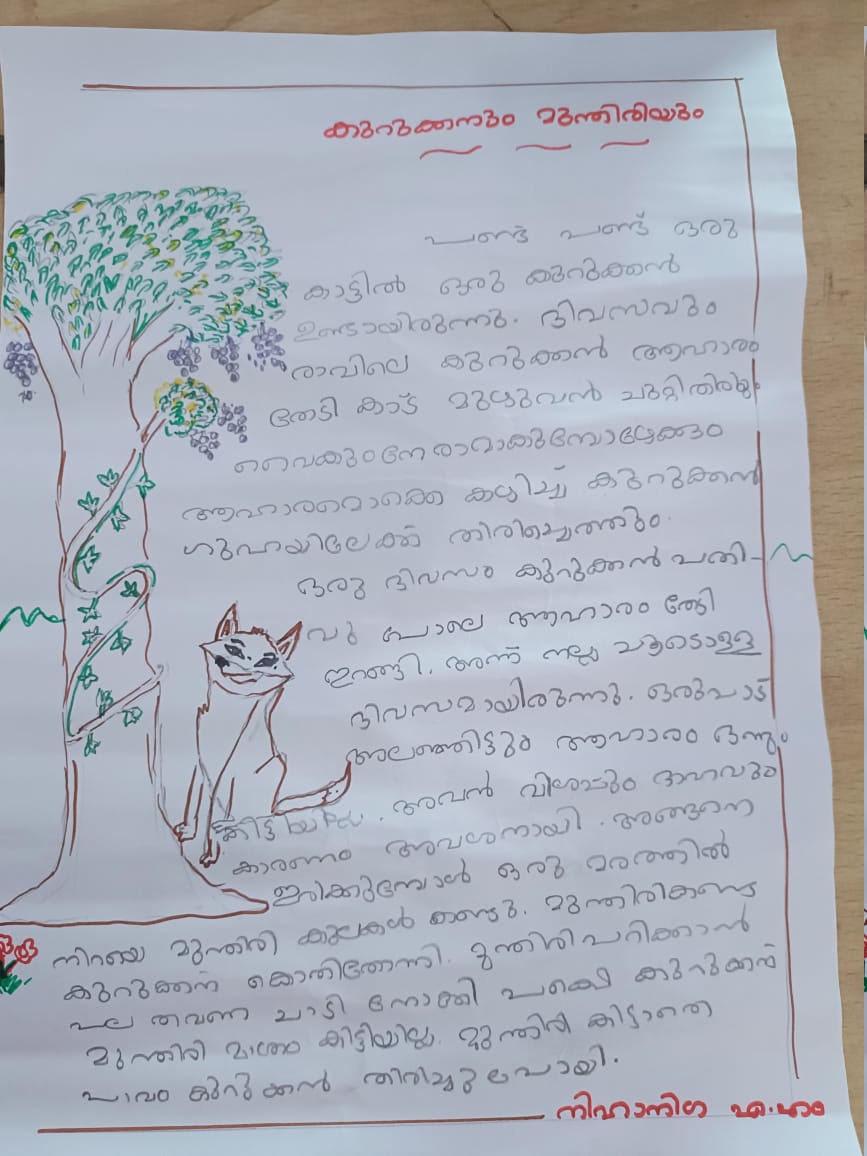 കുറുക്കനും മുന്തിരിയും
പണ്ട് പണ്ട് ഒരു
കാട്ടിൽ ഒരു കുറുക്കൻ
ഉണ്ടായിരുന്നു. ദിവസവും
രാവിലെ കുറുക്കൻ ആഹാരം
തേടി കാട് മുഴുവൻ ചുറ്റിതിരിയും
വൈകുംനേരാമാകുമ്പോഴേക്കും
ആഹാരമൊക്കെ കഴിച്ച് കുറുക്കൻ
ഗുഹയിലേക്ക് തിരിച്ചെത്തും.
ഒരു ദിവസം കുറുക്കൻ പതി-
വു പോലെ ആഹാരം തേടി
ഇറങ്ങി. അന്ന് നല്ല ചൂടൊള്ള
ദിവസമായിരുന്നു. ഒരുപാട്
അലഞ്ഞിട്ടും ആഹാരം ഒന്നും
കിട്ടിയില്ല. അവൻ വിശപ്പും ദാഹവും
കാരണം അവശനായി. അങ്ങനെ
ഇരിക്കുമ്പോൾ ഒരു മരത്തിൽ
നിറയെ മുന്തിരി കുലകൾ കണ്ടു. മുന്തിരികണ്ട
കുറുക്കന് കൊതിതോന്നി. മുന്തിരിപറിക്കാൻ
പല തവണ ചാടി നോക്കി പക്ഷെ കുറുക്കൻ
മുന്തിരി മാത്രം കിട്ടിയില്ല. മുന്തിരി കിട്ടാതെ
പാവം കുറുക്കൻ തിരിച്ചുപോയി.
നിഹാനിഗ എ.എം